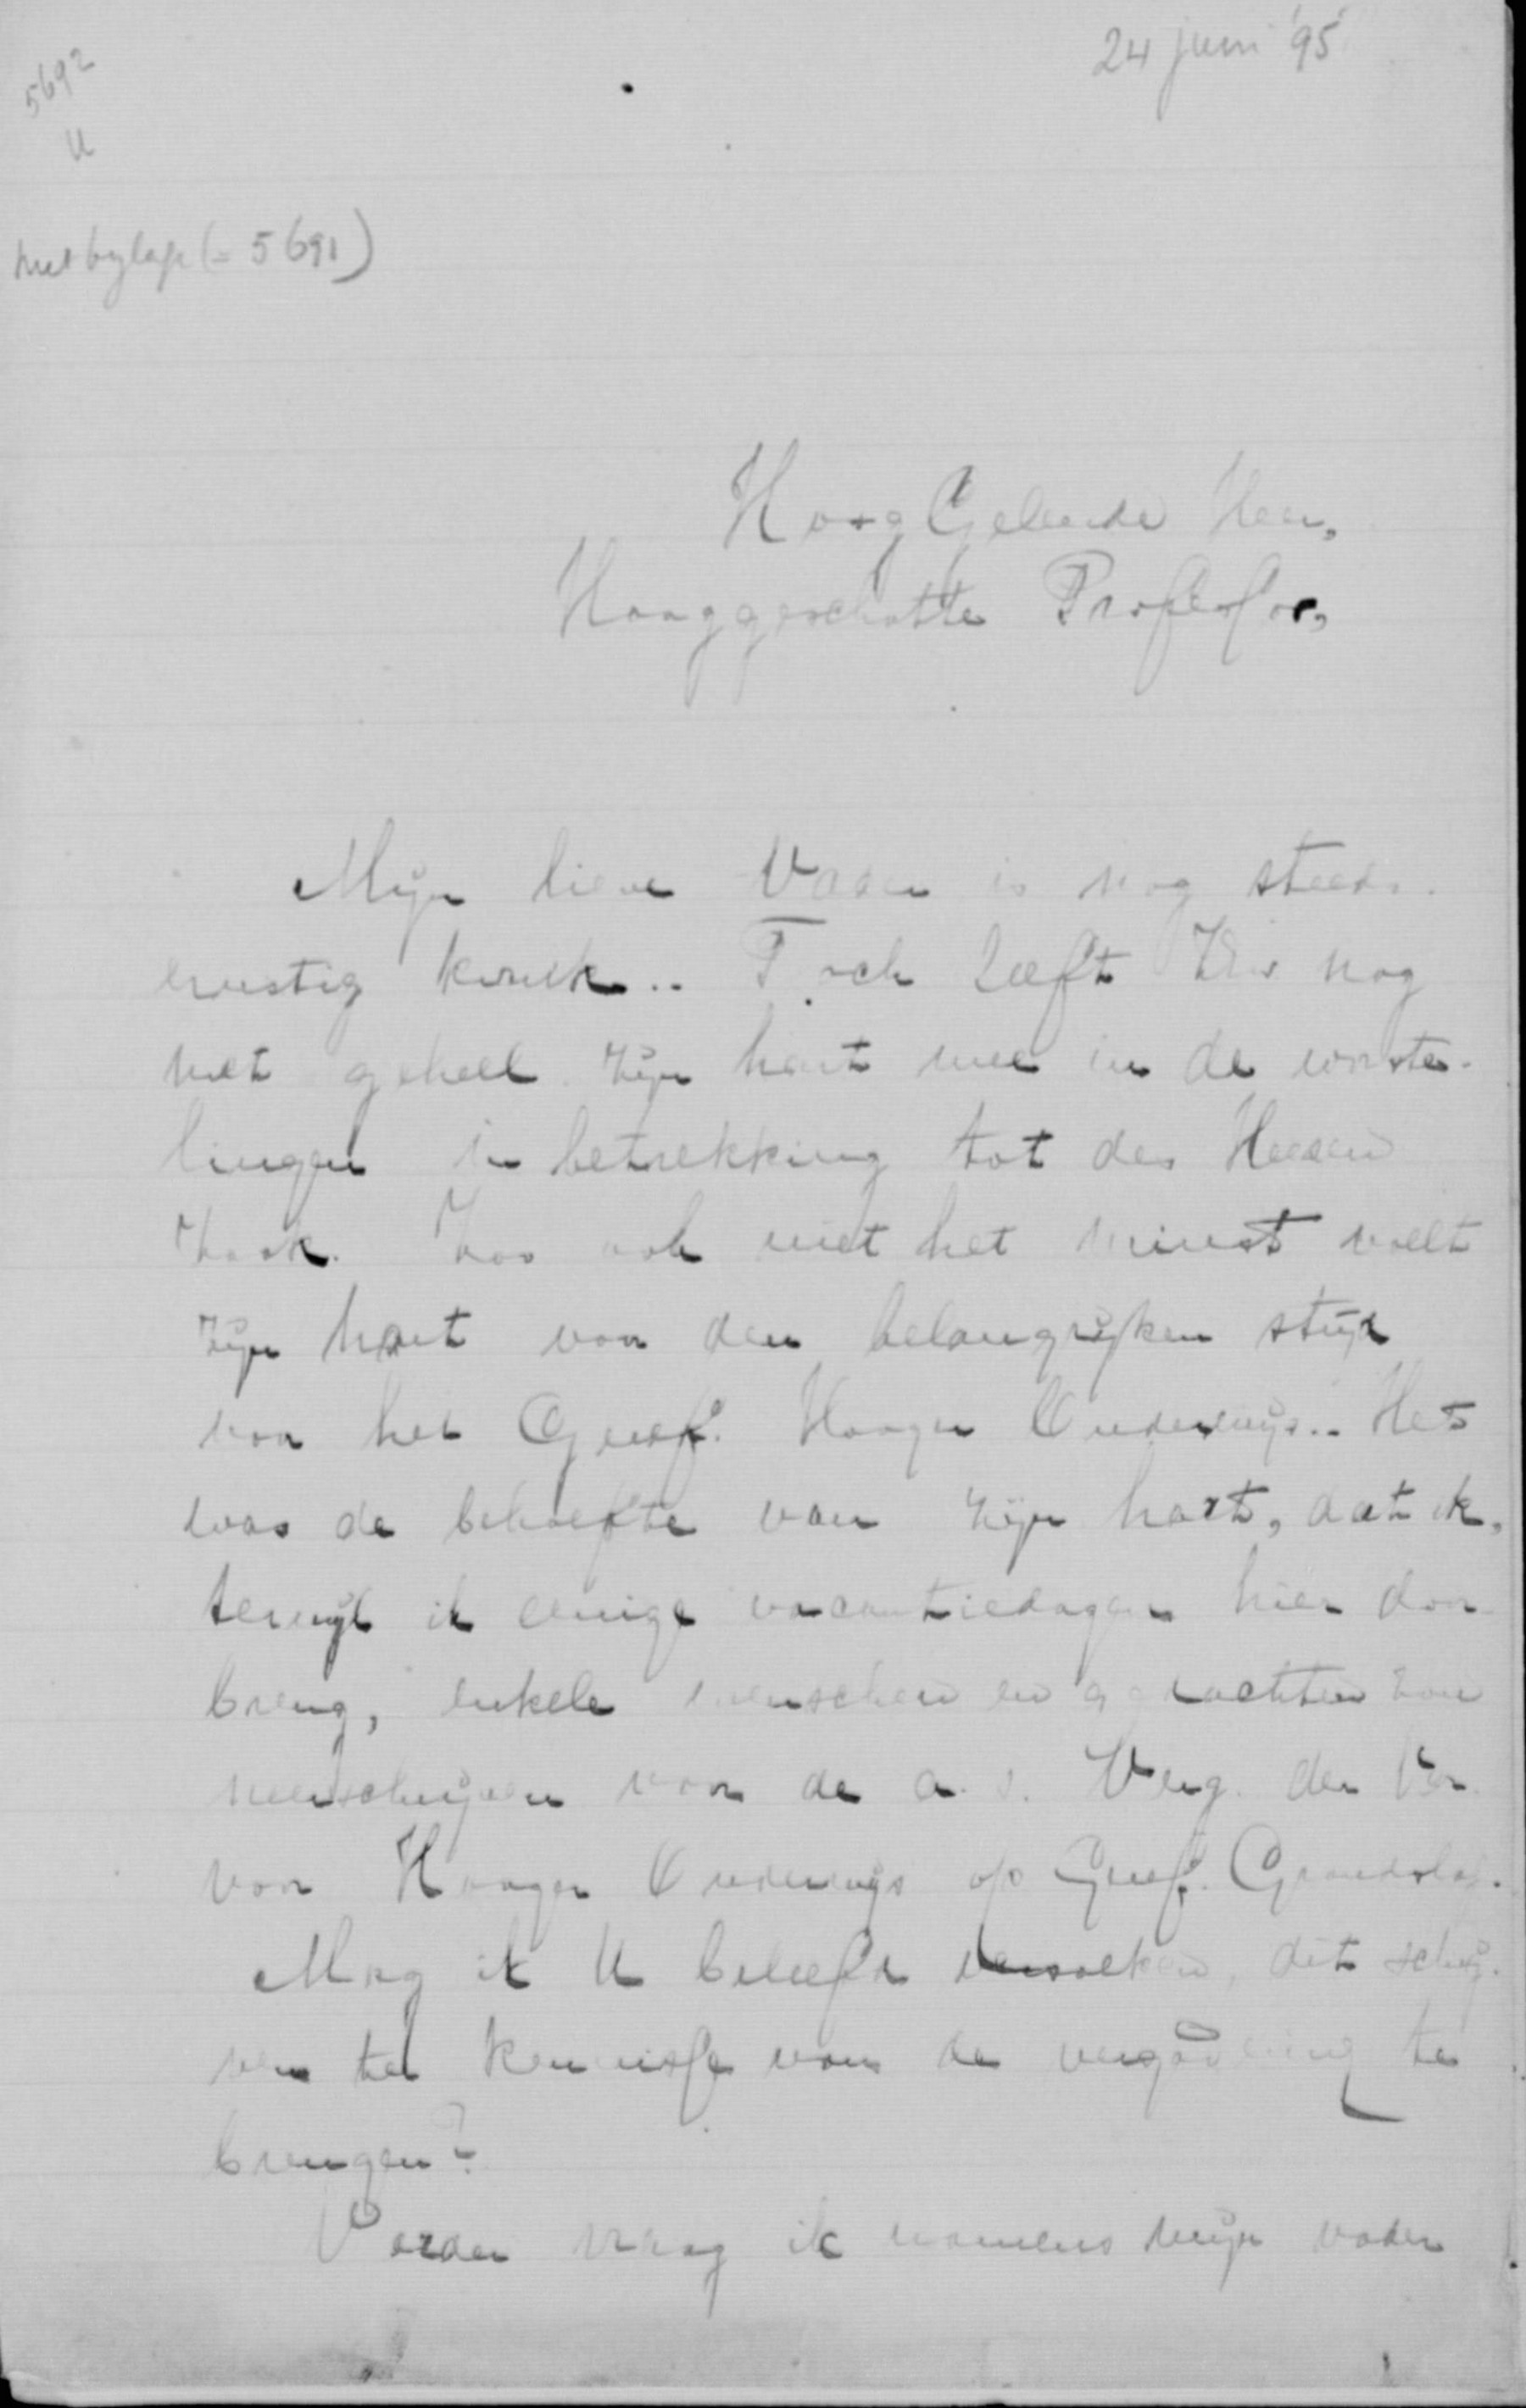 24 juni '95
5692
U
met bylage (= 5691)
HoogGeleerde Heer,
Hooggeschatte Professor,
Mijn lieve Vader is nog steeds
ernstig krank.. Toch leeft ZEw nog
met geheel zijn hart mee in de worste-
lingen in betrekking tot des Heeren
zaak. Zoo ook niet het minst voelt
zijn hart voor den belangrijken strijd
voor het Geref. Hooger Onderwijs.. Het
was de behoefte van zijn hart, dat ik,
terwijl ik eenige vacantiedagen hier door
breng, enkele wenschen en gedachten zou
neerschrijven voor de a.s. Verg. der Ver.
voor Hooger Onderwijs op Geref. Grondslag.
Mag ik U beleefd verzoeken, dit schrij-
ven ter kennisse van de vergadering te
brengen?
Verder vraag ik namens mijn vader